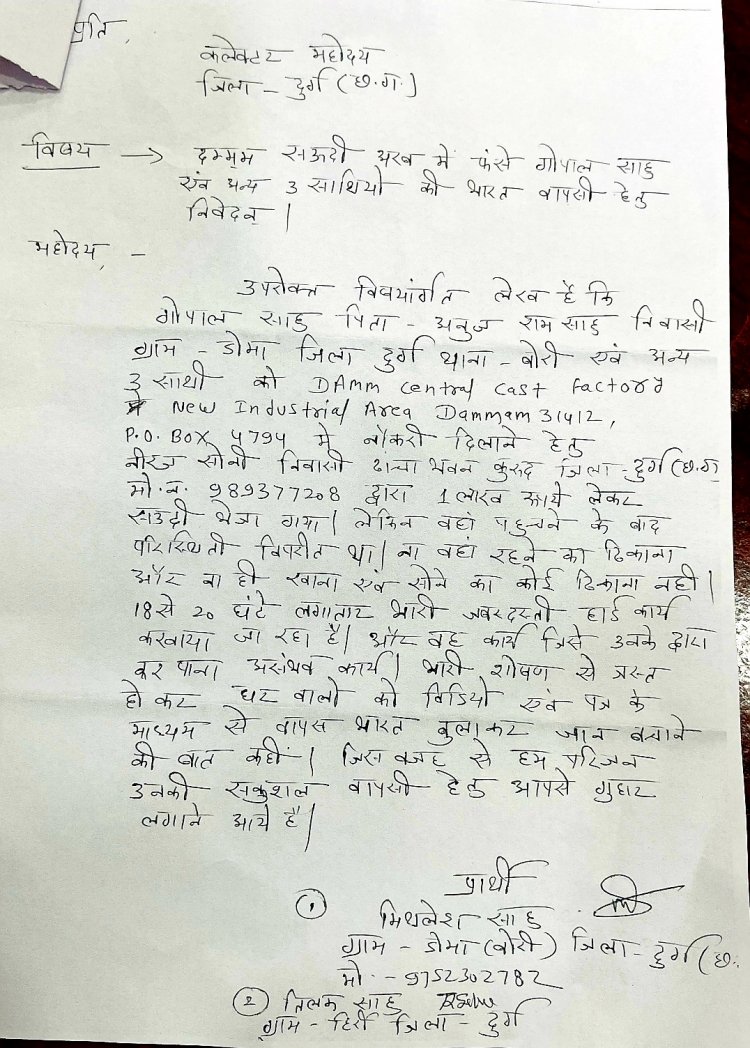 प्रति,
कलेक्टर महोदय
जिला - दुर्ग (छ.ग.)
विषय → दम्मम सऊदी अरब में फंसे गोपाल साहु
एवं अन्य 3 साथियो की भारत वापसी हेतु
निवेदन |
महोदय, -
उपरोक्त विषयांर्गत लेख है कि
गोपाल साहु पिता - अनुज राम साहु निवासी
ग्राम - डोमा जिला दुर्ग थाना - बोरी एवं अन्य
3 साथी को DAmm central cast factory
New Industrial Area Dammam 31412,
P.O. BOX 4794 मे नौकरी दिलाने हेतु
नीरज सोनी निवासी ढाचा भवन कुरुद जिला - दुर्ग (छ.ग
मो.न. 989377208 द्वारा 1 लाख रूपये लेकर
साउदी भेजा गया | लेकिन वहां पहुचने के बाद
परिस्थिती विपरीत था | ना वहां रहने का ठिकाना
और ना ही खाना एवं सोने का कोई ठिकाना नही |
18 से 20 घंटे लगातार भारी जबरदस्ती हार्ड कार्य
करवाया जा रहा है | और वह कार्य जिसे उनके द्वारा
कर पाना असंभव कार्य | भारी शोषण से त्रस्त
होकर घर वालो को विडियो एवं पत्र के
माध्यम से वापस भारत बुलाकर जान बचाने
की बात कही | जिस वजह से हम परिजन
उनकी सकुशल वापसी हेतु आपसे गुहार
लगाने आये है |
प्रार्थी
① मिथलेश साहु
ग्राम - डोमा (बोरी) जिला - दुर्ग (छ.
मो. - 9752302782
② तिलक साहु
ग्राम - हिर्री जिला - दुर्ग